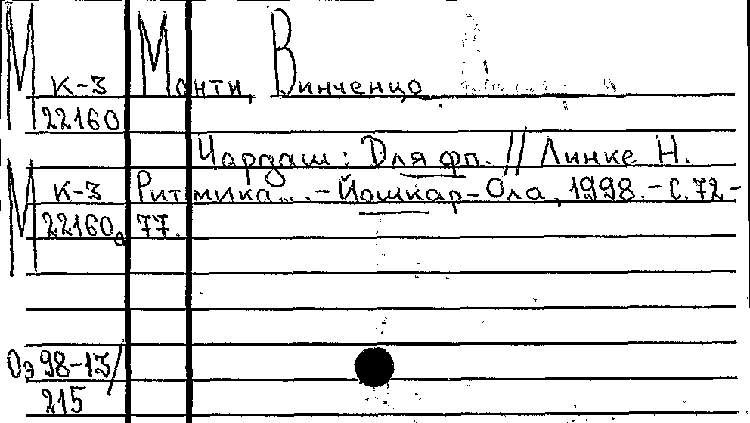 М К-3 Монти, Винченцо
22160
Чардаш : Для фп. // Линке Н.
М К-3 Ритмика... - Йошкар-Ола, 1998. - С. 72-
22160а 77.
Оэ 98-13/
215